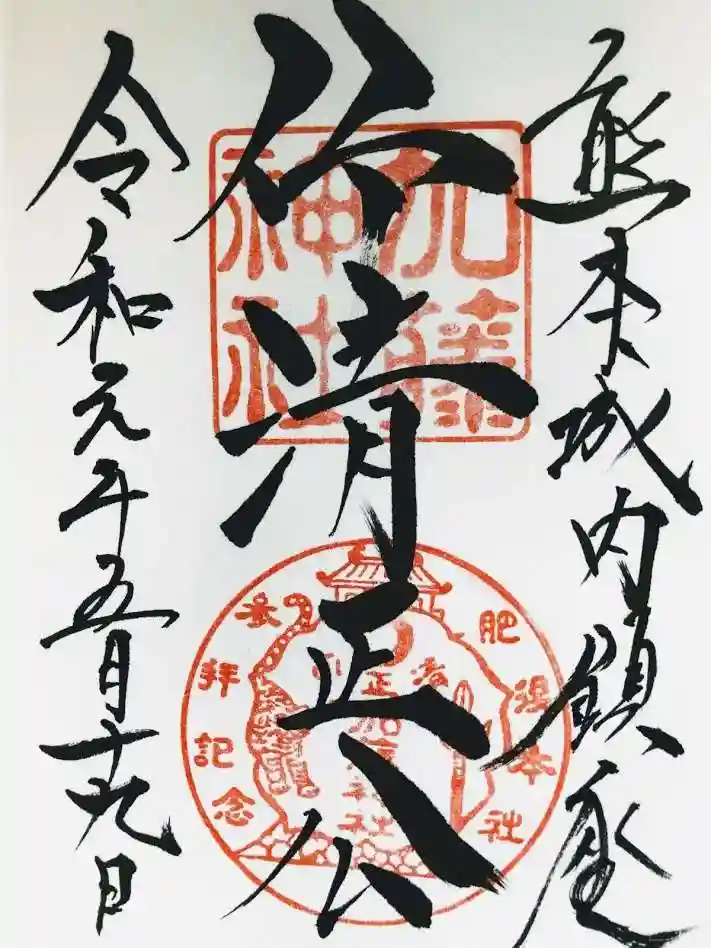 熊本城内鎮座
清正公
令和元年五月十九日
加藤
神社
肥後本社
参拝記念